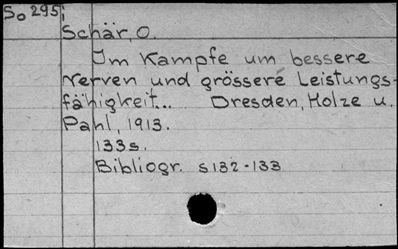 So 295i
Schär, O.
Im Kampfe um bessere
Nerven und grössere Leistungs-
fähigkeit... Dresden, Holze u.
Pahl, 1913.
133s.
Bibliogr. s132-133